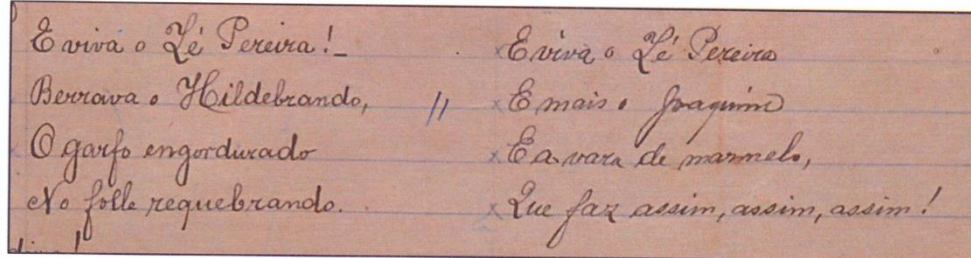 E viva o Zé Pereira!_
Berrava o Hildebrando,
O garfo engordurado
No folle requebrando.
//
E viva o Zé Pereira
E mais o Joaquim
E a vara de marmelo,
Que faz assim, assim, assim!